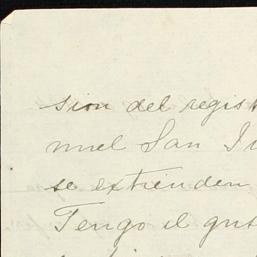 sion del regis
nuel San I
se extienden
Tengo el gus